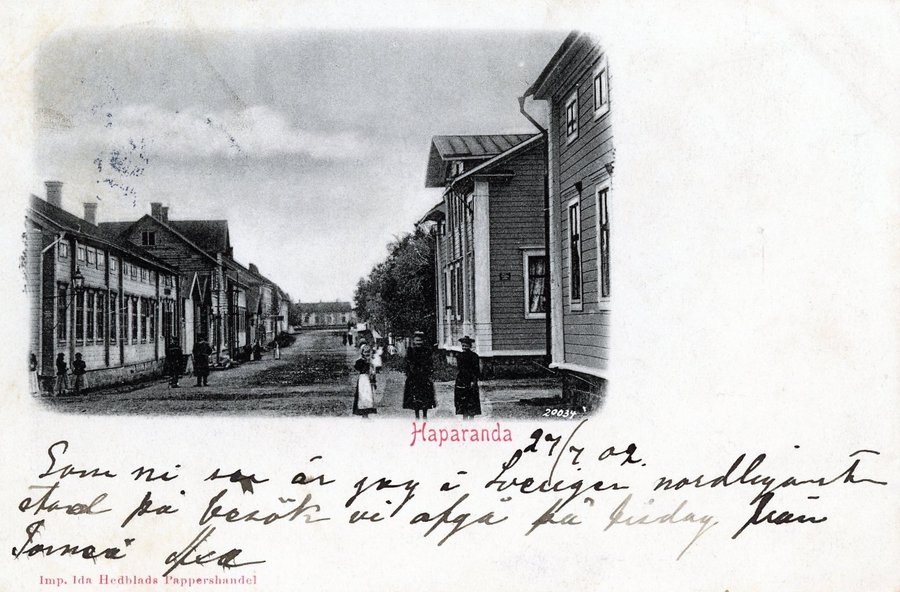 20034
Haparanda
27/7 02.
Som ni ser är jag i Sveriges nordligaste
stad på besök vi afgå på tisdag från
Torneå
Imp. Ida Hedblads Pappershandel